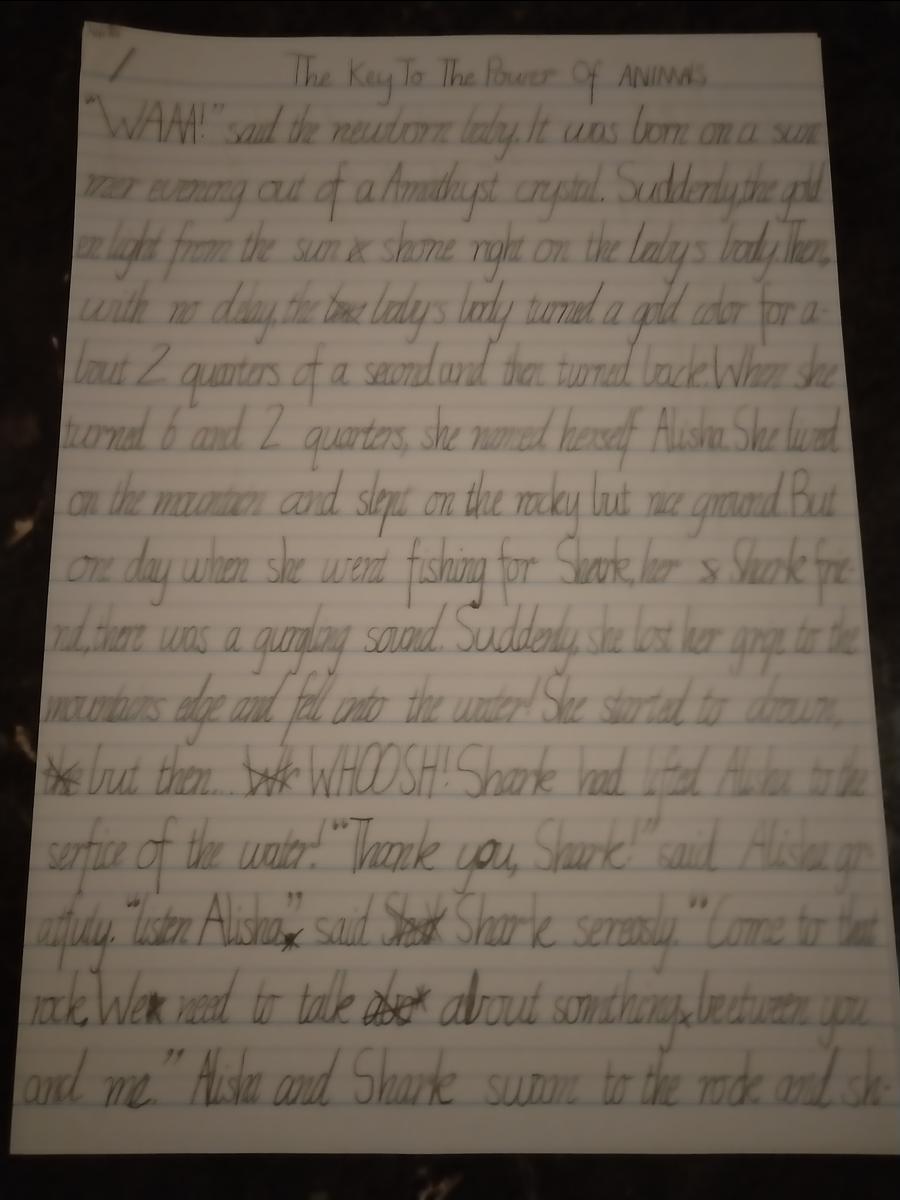 1
The Key To The Power Of ANIMALS
"WAAA!" said the newborn baby. It was born on a sum
mer evening out of a Amathyst crystal. Suddenly, the gold
en light from the sun shone right on the baby's body. Then,
with no delay, the baby's body turned a gold color for a-
bout 2 quarters of a second and then turned back. When she
turned 6 and 2 quarters, she named herself Alisha. She lived
on the mountain and slept on the rocky but nice ground. But
one day when she went fishing for Shark, her Shark frie-
nd, there was a gurgling sound. Suddenly, she lost her gripe to the
mountains edge and fell onto the water! She started to drown,
but then... WHOOSH! Shark had lifted Alisha to the
serfice of the water! "Thank you, Shark!" said Alisha gr
atfuly. "listen Alisha," said Shark sereasly. "Come to that
rock. We need to talk about somthing beetween you
and me." Alisha and Shark swam to the rock and sh-